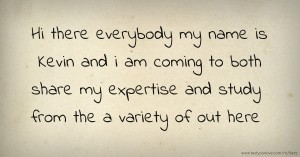 Hi there everybody my name is
Kevin and i am coming to both
share my expertise and study
from the a variety of out here